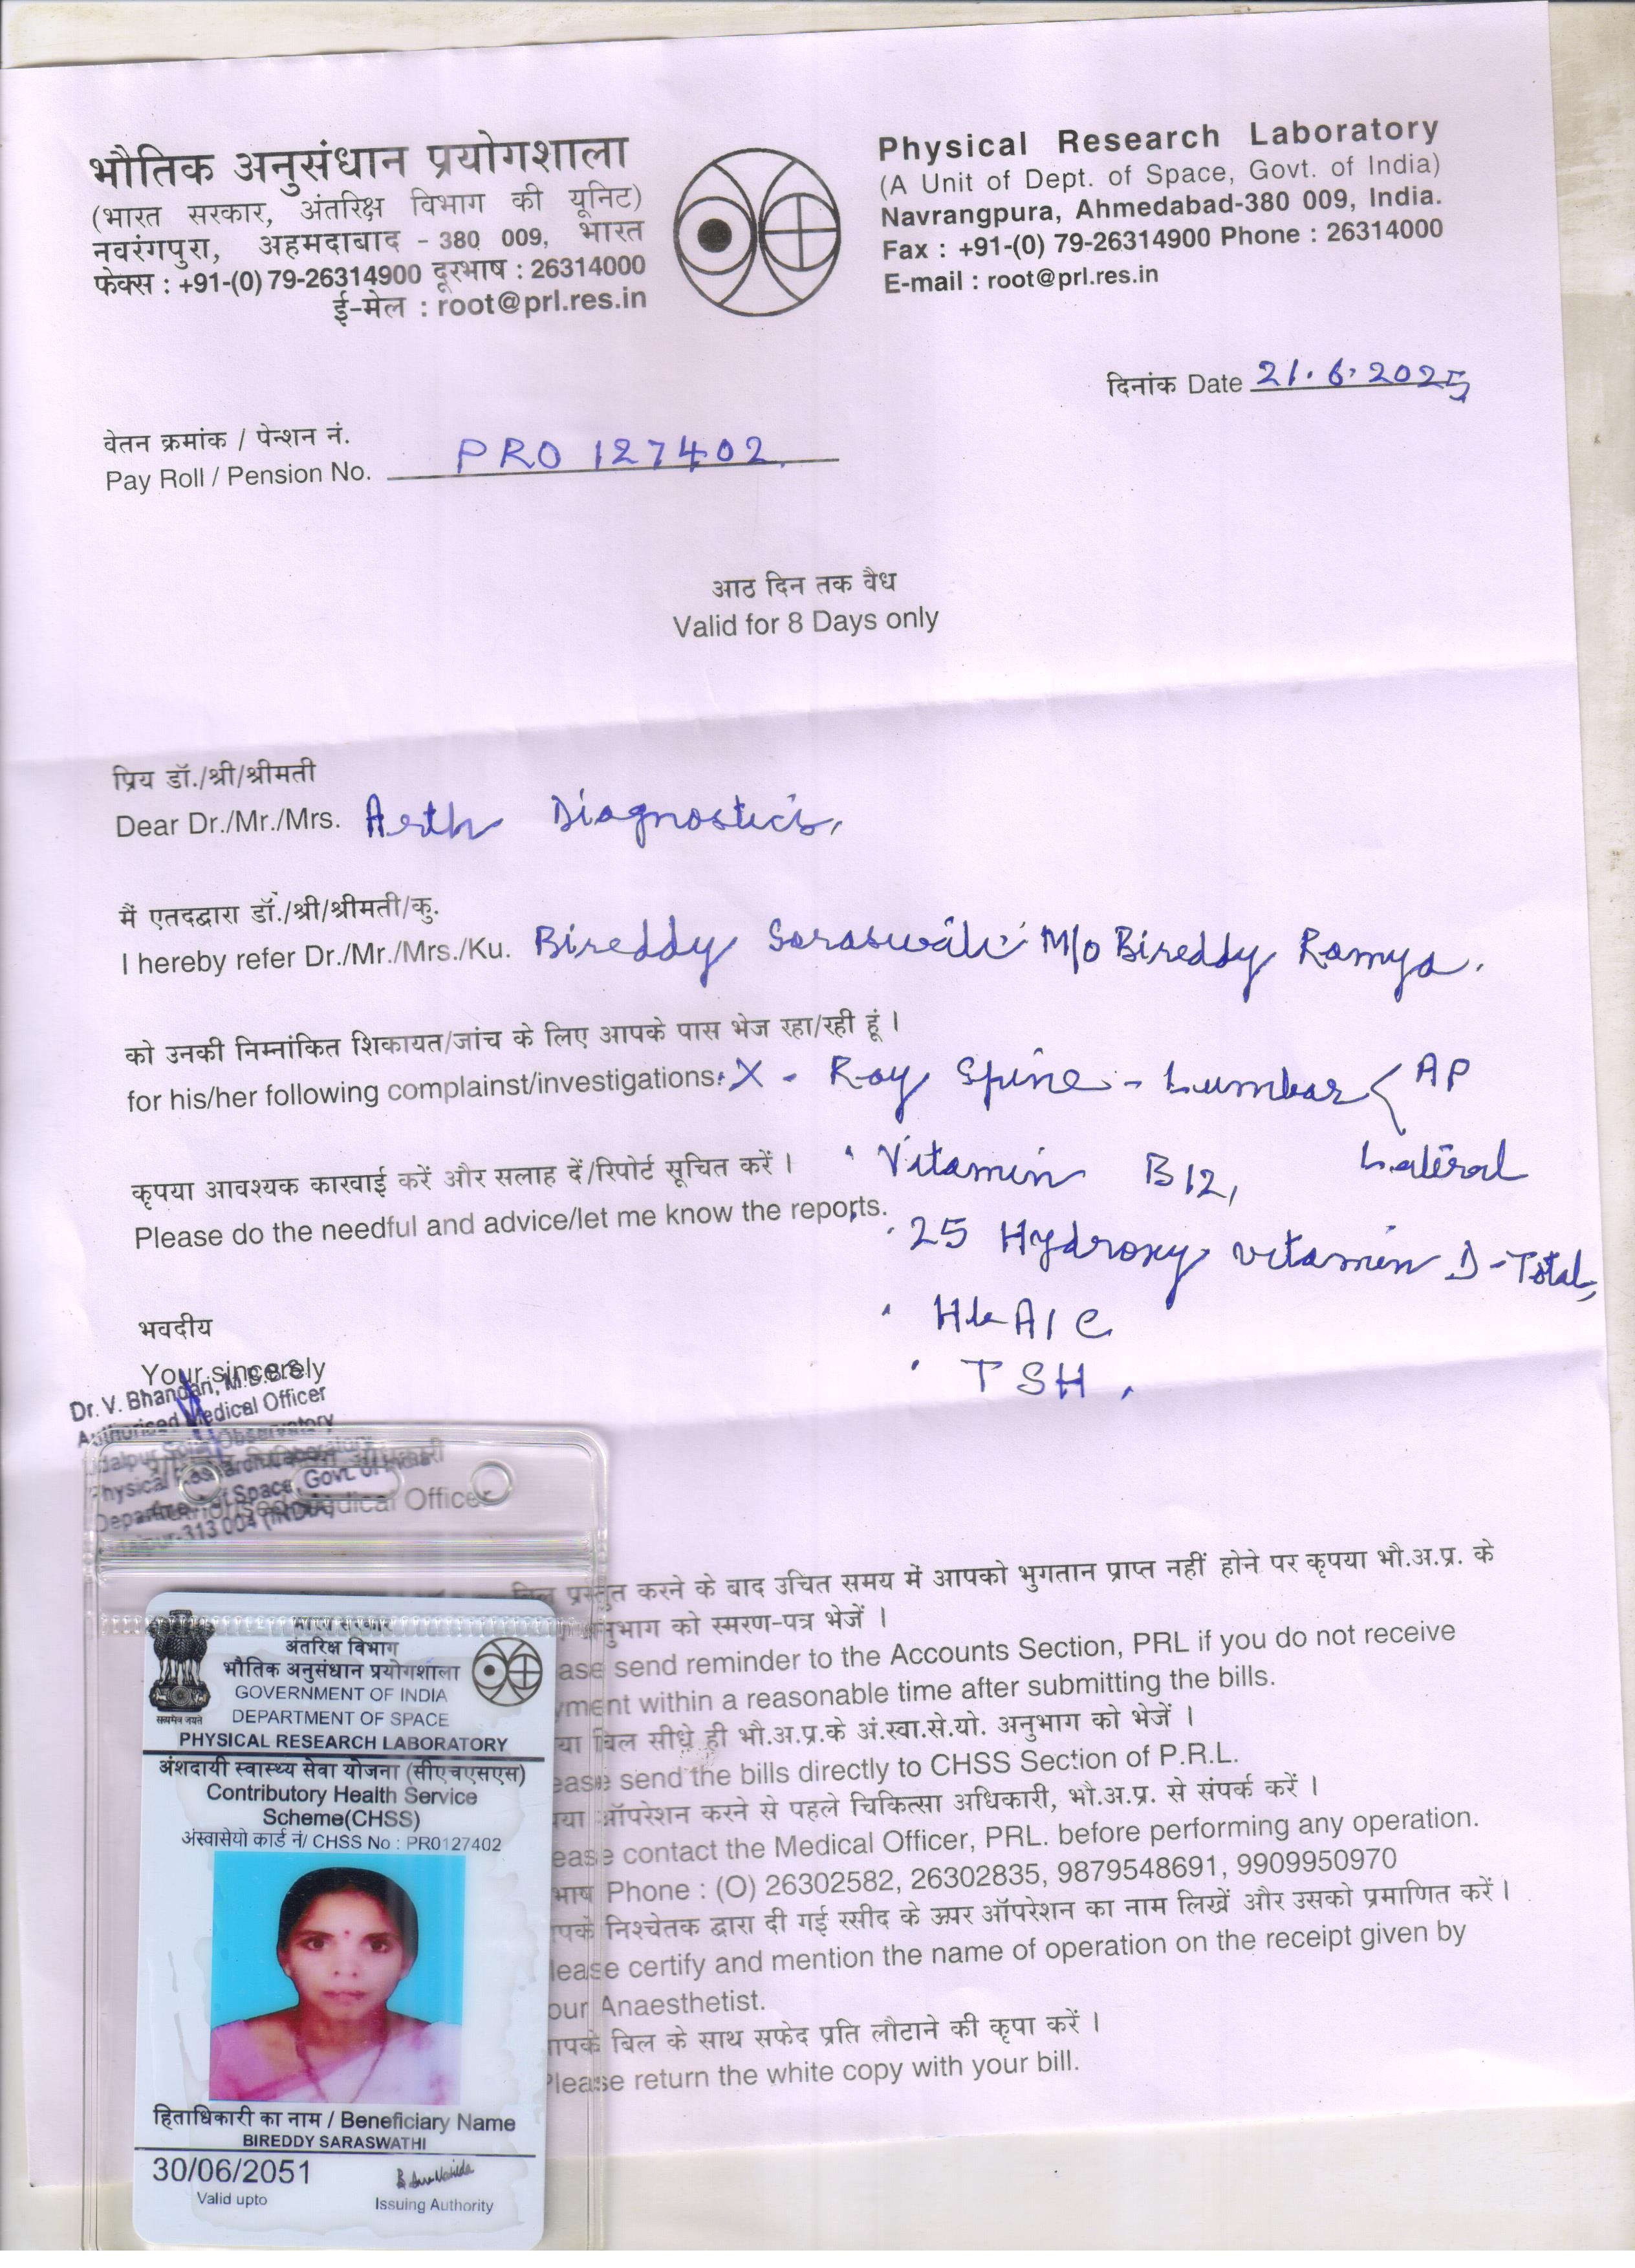 भौतिक अनुसंधान प्रयोगशाला
(भारत सरकार, अंतरिक्ष विभाग की यूनिट)
नवरंगपुरा, अहमदाबाद - 380 009, भारत
फेक्स : +91-(0) 79-26314900 दूरभाष : 26314000
ई-मेल : root@prl.res.in
Physical Research Laboratory
(A Unit of Dept. of Space, Govt. of India)
Navrangpura, Ahmedabad-380 009, India.
Fax : +91-(0) 79-26314900 Phone : 26314000
E-mail : root@prl.res.in
दिनांक Date 21.6.2025
वेतन क्रमांक / पेन्शन नं.
Pay Roll / Pension No. PRO 127402
आठ दिन तक वैध
Valid for 8 Days only
प्रिय डॉ./श्री/श्रीमती
Dear Dr./Mr./Mrs. Arth Diagnostics,
मैं एतदद्वारा डॉ./श्री/श्रीमती/कु.
I hereby refer Dr./Mr./Mrs./Ku. Bireddy Saraswati M/o Bireddy Ramya.
को उनकी निम्नांकित शिकायत/जांच के लिए आपके पास भेज रहा/रही हूं ।
for his/her following complainst/investigations. X - Ray Spine - Lumbar < AP
Lateral
कृपया आवश्यक कारवाई करें और सलाह दें/रिपोर्ट सूचित करें ।
Vitamin B12,
Please do the needful and advice/let me know the reports.
25 Hydroxy vitamin D - Total,
HbA1C
TSH,
भवदीय
Your sincerely
Dr. V. Bhandari, M.B.B.S.
Authorised Medical Officer
Udaipur Solar Observatory
Physical Research Laboratory
Department of Space, Govt. of India
313 004 (INDIA)
Authorised Medical Officer
बिल प्रस्तुत करने के बाद उचित समय में आपको भुगतान प्राप्त नहीं होने पर कृपया भौ.अ.प्र. के
अनुभाग को स्मरण-पत्र भेजें ।
send reminder to the Accounts Section, PRL if you do not receive
within a reasonable time after submitting the bills.
बिल सीधे ही भौ.अ.प्र.के अं.स्वा.से.यो. अनुभाग को भेजें ।
send the bills directly to CHSS Section of P.R.L.
ऑपरेशन करने से पहले चिकित्सा अधिकारी, भौ.अ.प्र. से संपर्क करें ।
contact the Medical Officer, PRL. before performing any operation.
Phone : (O) 26302582, 26302835, 9879548691, 9909950970
निश्चेतक द्वारा दी गई रसीद के ऊपर ऑपरेशन का नाम लिखें और उसको प्रमाणित करें ।
certify and mention the name of operation on the receipt given by
Anaesthetist.
बिल के साथ सफेद प्रति लौटाने की कृपा करें ।
Please return the white copy with your bill.
भारत सरकार
अंतरिक्ष विभाग
भौतिक अनुसंधान प्रयोगशाला
सत्यमेव जयते
GOVERNMENT OF INDIA
DEPARTMENT OF SPACE
PHYSICAL RESEARCH LABORATORY
अंशदायी स्वास्थ्य सेवा योजना (सीएचएसएस)
Contributory Health Service
Scheme(CHSS)
अंस्वासेयो कार्ड नं/ CHSS No : PR0127402
हिताधिकारी का नाम / Beneficiary Name
BIREDDY SARASWATHI
30/06/2051
Valid upto
Issuing Authority